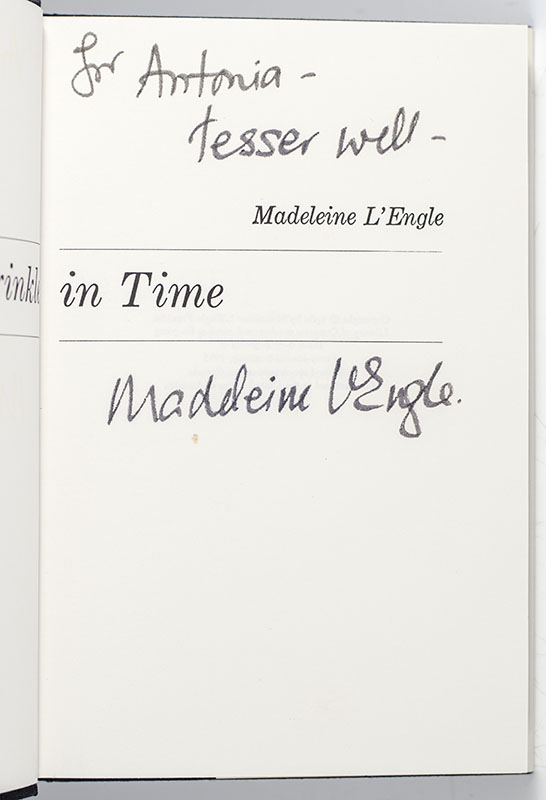 for Antonia -
tesser well -
Madeleine L'Engle
rinkle in Time
Madeleine L'Engle.